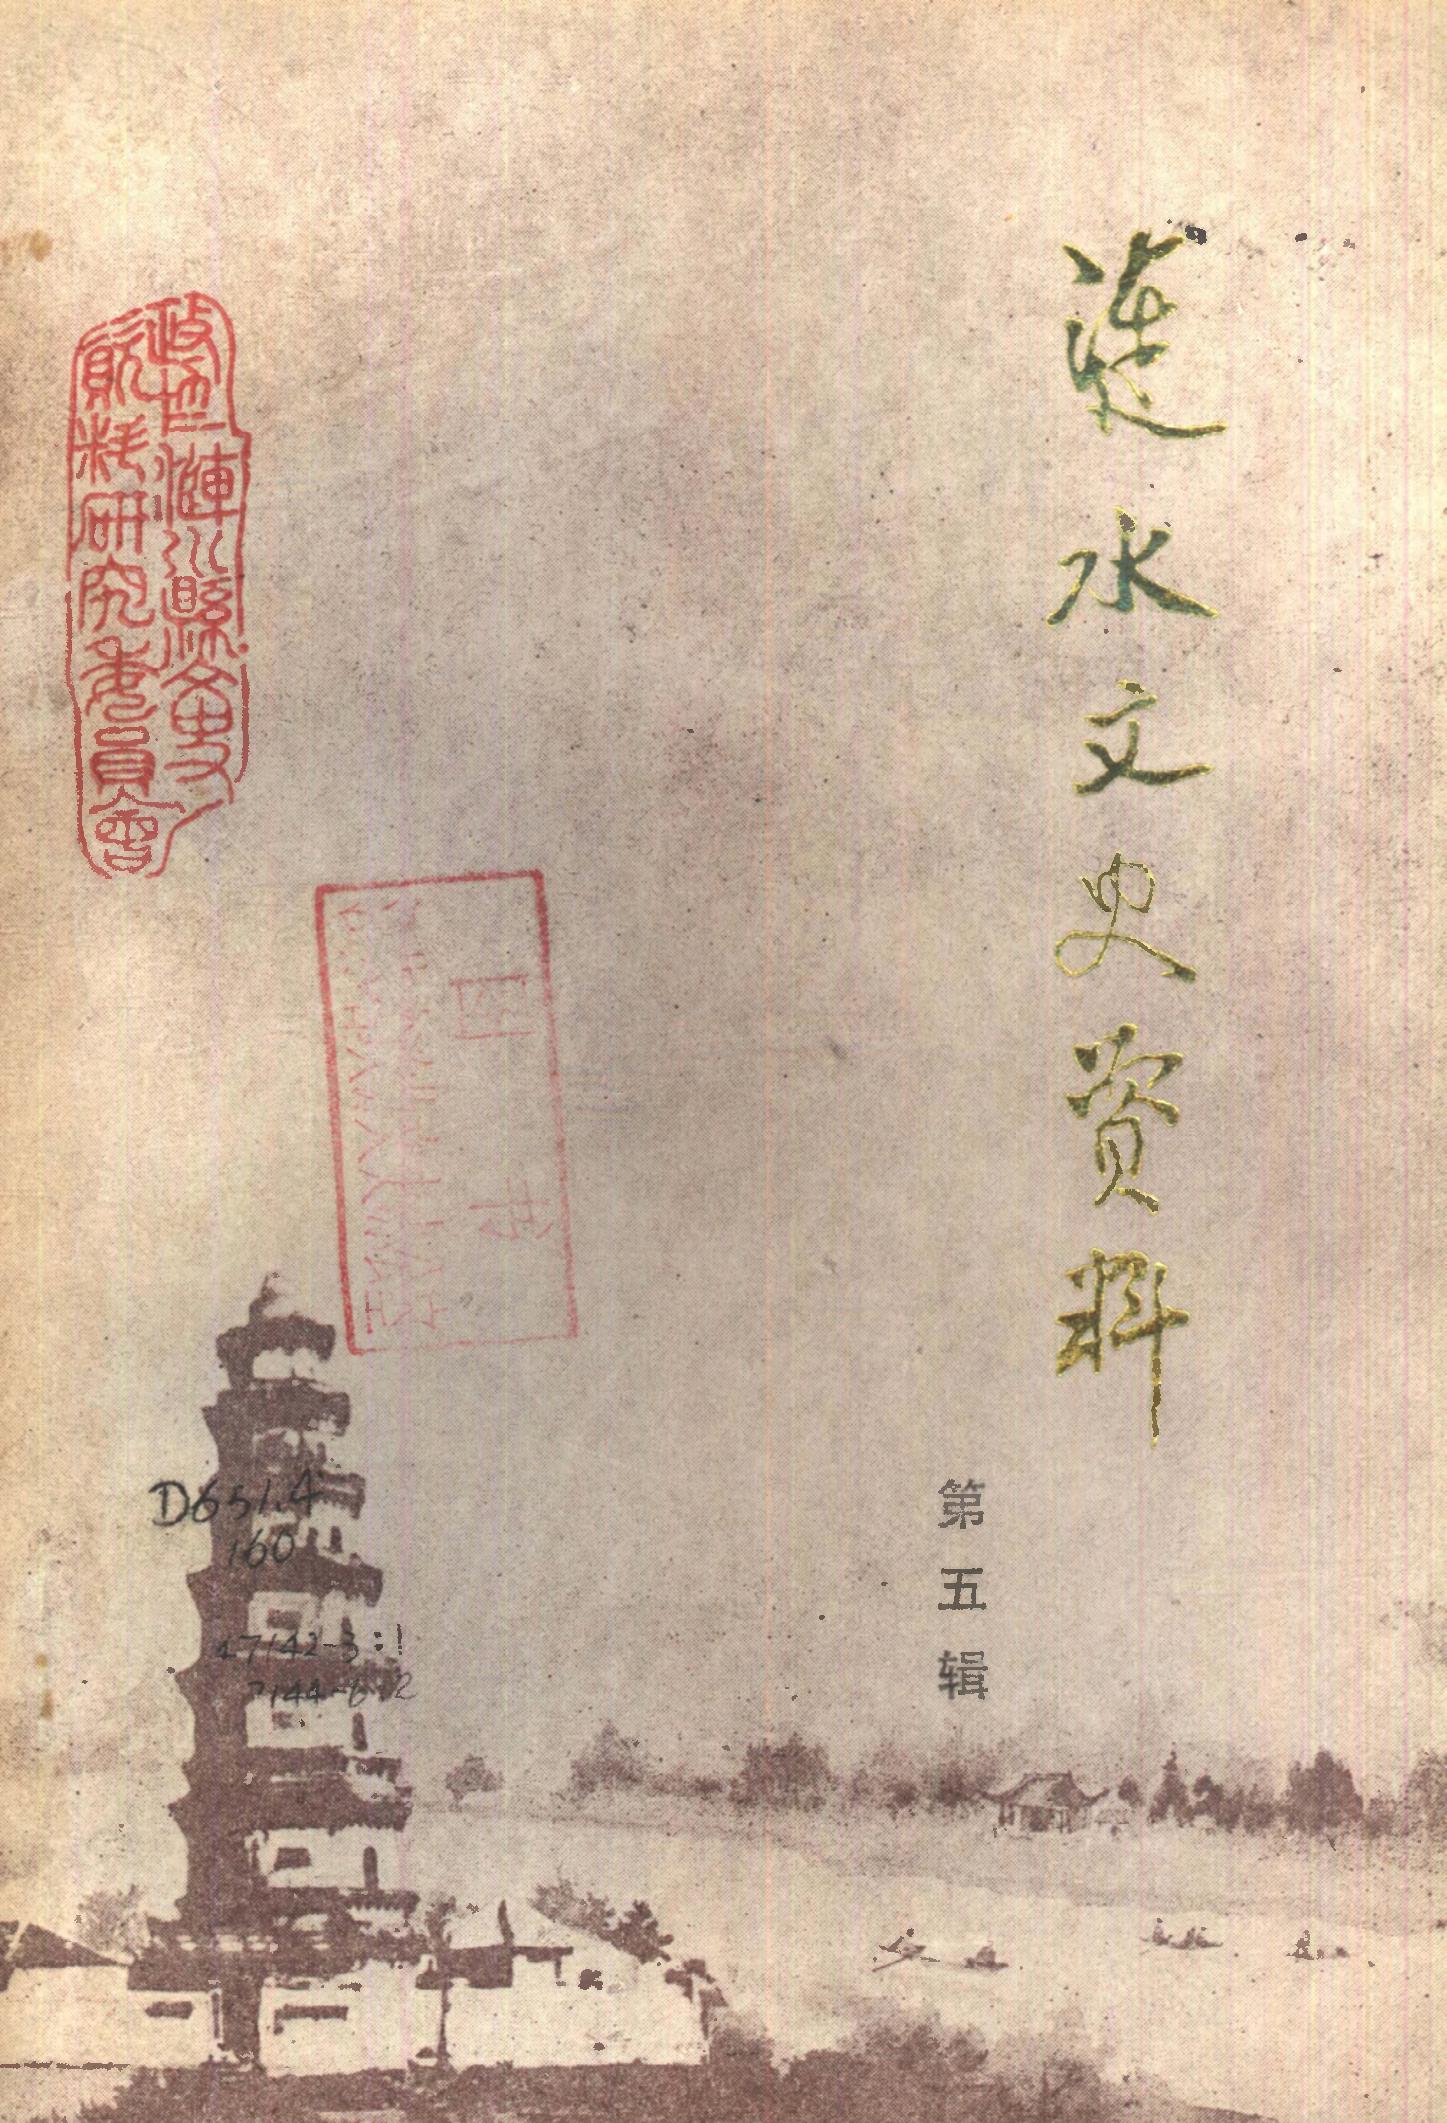 涟水文史资料
第五辑
政协涟水县文史
资料研究委员会
图书
D651.4
160
47142-3:1